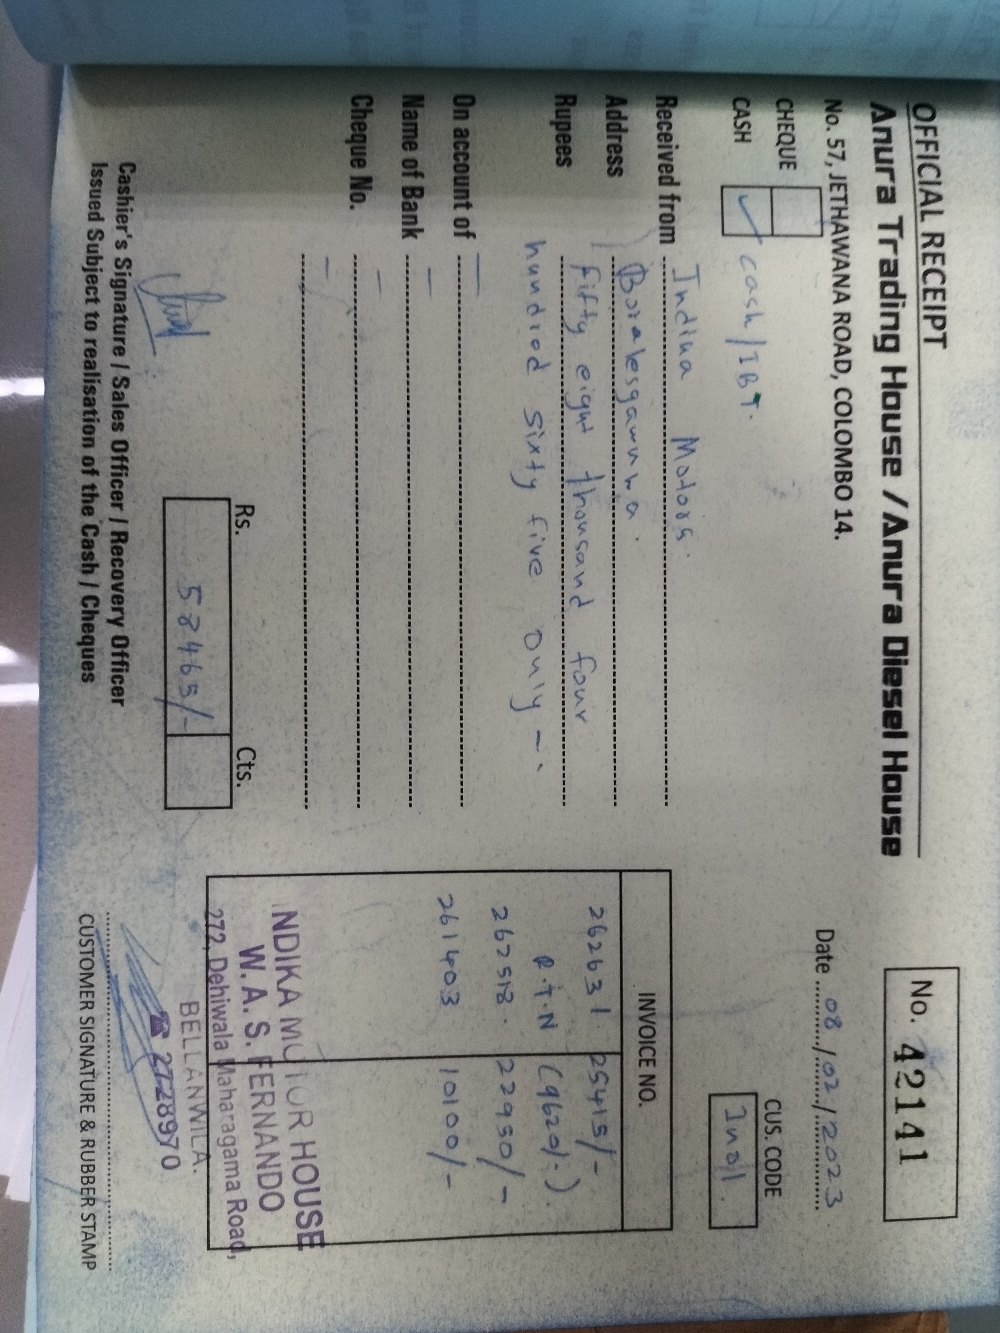 OFFICIAL RECEIPT
Anura Trading House / Anura Diesel House
No. 57, JETHAWANA ROAD, COLOMBO 14.
No. 42141
Date 08/02/2023
CHEQUE
CASH ✓ cash/IBT.
CUS. CODE
In01.
Received from Indika Motors.
Address Boralesgamuwa.
Rupees Fifty eight thousand four
hundred sixty five only -.
On account of –
Name of Bank –
Cheque No. –
–
INVOICE NO.
262631. 25415/-
R.T.N (9620/-)
262518. 22950/-
261403 10100/-
Rs. Cts.
58465/-
Cashier's Signature / Sales Officer / Recovery Officer
Issued Subject to realisation of the Cash / Cheques
INDIKA MOTOR HOUSE
W. A. S. FERNANDO
272, Dehiwala Maharagama Road,
BELLANWILA.
☎ 2728970
CUSTOMER SIGNATURE & RUBBER STAMP